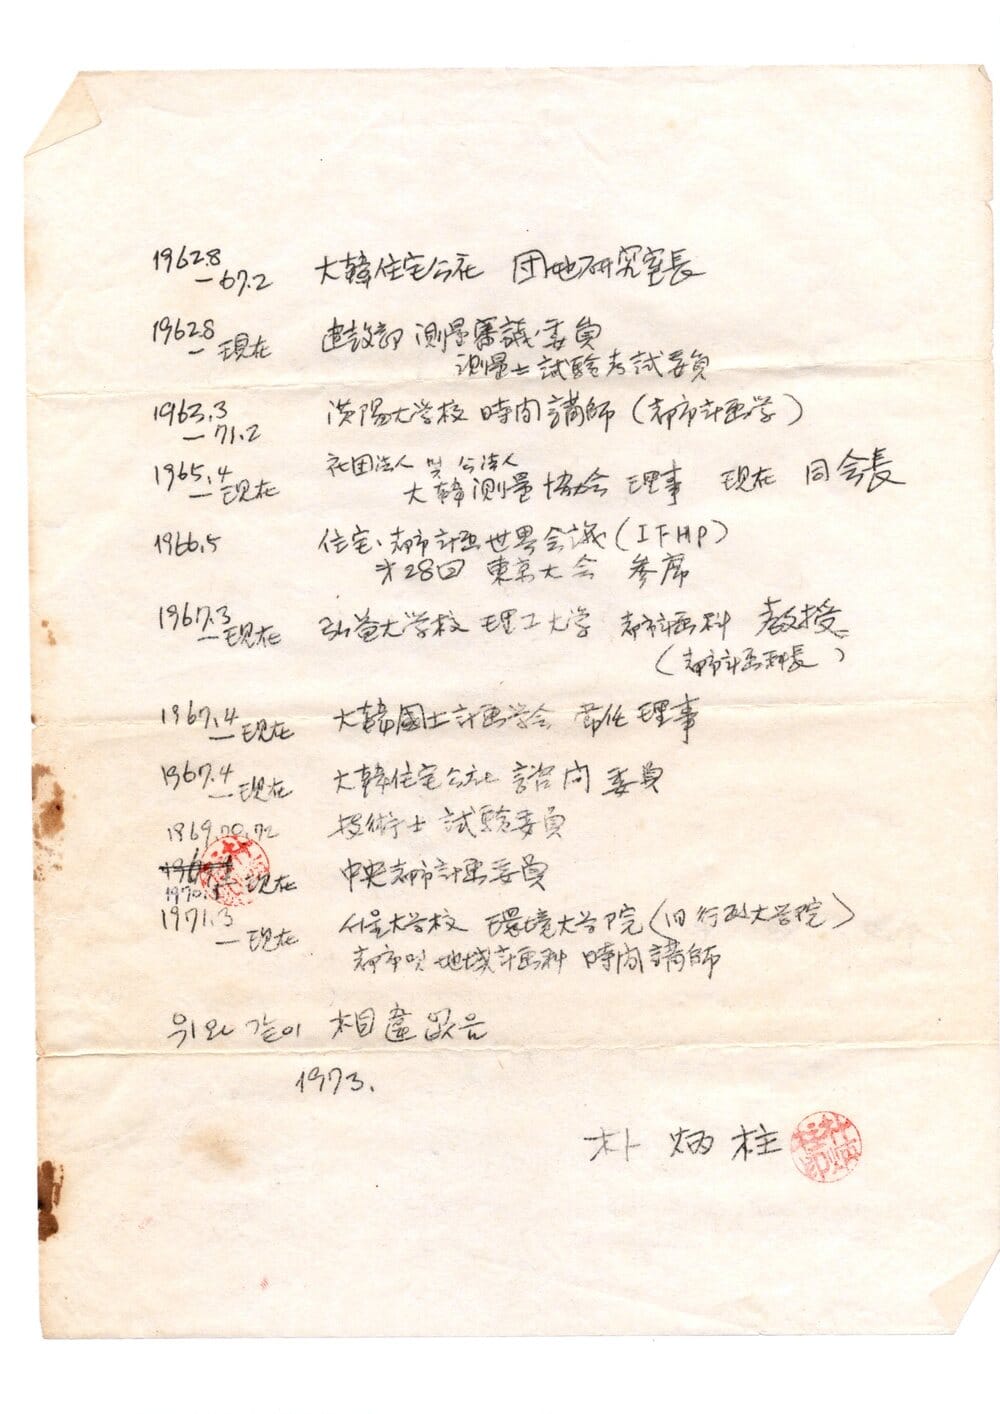 1962.8
—67.2 大韓住宅公社 団地研究室長
1962.8
—現在 建設部 測量審議委員
測量士試験考試委員
1963.3
—71.2 漢陽大学校 時間講師(都市計画学)
1965.4 社団法人 및 公法人
—現在 大韓測量協会 理事 現在 同会長
1966.5 住宅·都市計画世界会議(IFHP)
才28回 東京大会 参席
1967.3
—現在 弘益大学校 理工大学 都市計画科 教授
(都市計画科長)
1967.4
—現在 大韓國土計画学会 常任理事
1967.4
—現在 大韓住宅公社 諮问委員
1969,70,72 技術士 試験委員
1970.1 —現在 中央都市計画委員
1971.3
—現在 서울大学校 環境大学院(旧行政大学院)
都市및地域計画科 時间講師
위와 같이 相違없음
1973.
朴炳柱